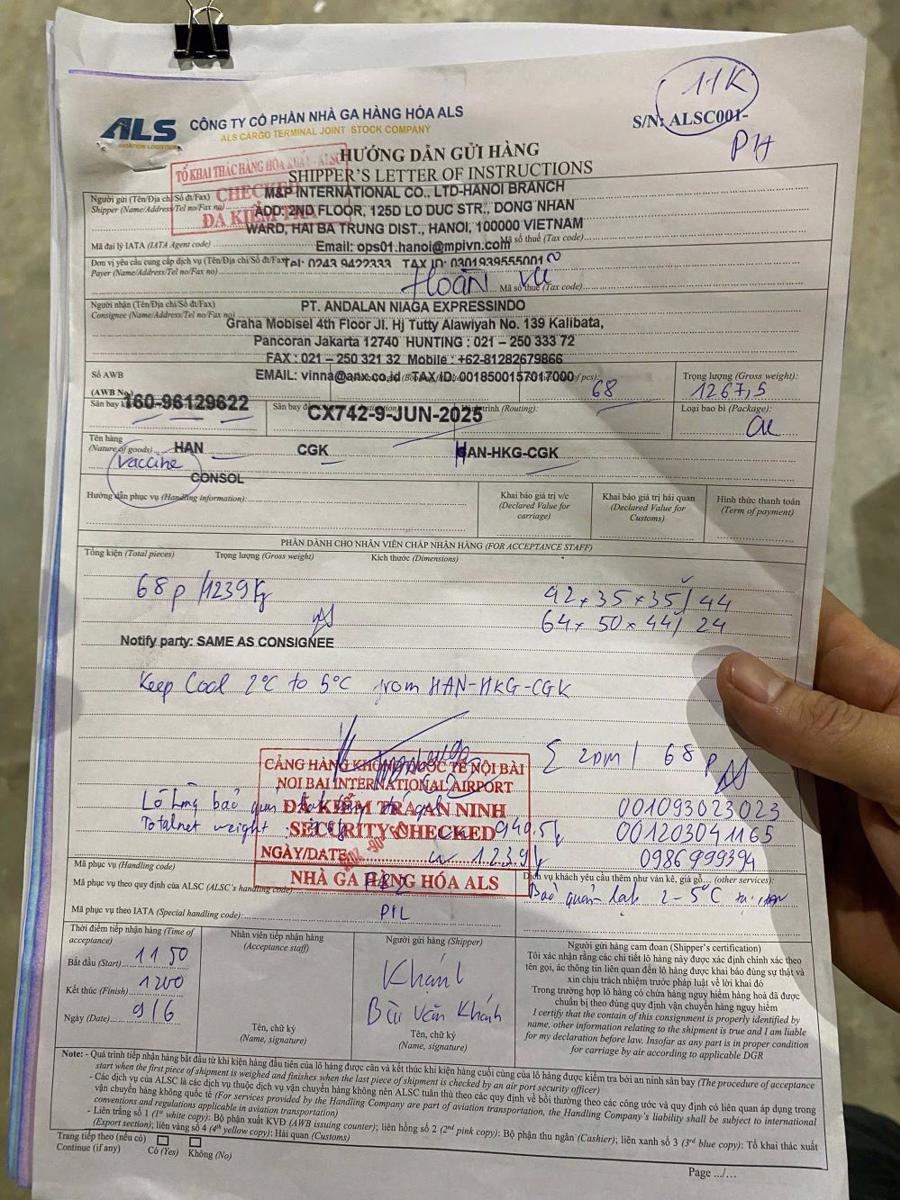 11K
ALS
AVIATION LOGISTICS
CÔNG TY CỔ PHẦN NHÀ GA HÀNG HÓA ALS
ALS CARGO TERMINAL JOINT STOCK COMPANY
S/N: ALSC001-
PIA
HƯỚNG DẪN GỬI HÀNG
SHIPPER'S LETTER OF INSTRUCTIONS
TỔ KHAI THÁC HÀNG HÓA XUẤT - ALSC
CHECKED
ĐÃ KIỂM TRA
Người gửi (Tên/Địa chỉ/Số đt/Fax)
Shipper (Name/Address/Tel no/Fax no)
M&P INTERNATIONAL CO., LTD-HANOI BRANCH
ADD: 2ND FLOOR, 125D LO DUC STR., DONG NHAN
WARD, HAI BA TRUNG DIST., HANOI, 100000 VIETNAM
Mã đại lý IATA (IATA Agent code)
Email: ops01.hanoi@mpivn.com
Mã số thuế (Tax code)
Đơn vị yêu cầu cung cấp dịch vụ (Tên/Địa chỉ/Số đt/Fax)
Tel: 0243 9422333 TAX ID: 0301939555001
Payer (Name/Address/Tel no/Fax no)
Hoàn Vũ
Mã số thuế (Tax code)
Người nhận (Tên/Địa chỉ/Số đt/Fax)
Consignee (Name/Address/Tel no/Fax no)
PT. ANDALAN NIAGA EXPRESSINDO
Graha Mobisel 4th Floor Jl. Hj Tutty Alawiyah No. 139 Kalibata,
Pancoran Jakarta 12740 HUNTING : 021 – 250 333 72
FAX : 021 – 250 321 32 Mobile : +62-81282679866
EMAIL: vinna@anx.co.id TAX ID: 0018500157017000
Số AWB
(AWB No)
160-96129622
68
Trọng lượng (Gross weight):
1267,5
Sân bay
Sân bay
CX742-9-JUN-2025
(Routing):
Loại bao bì (Package):
Tên hàng
(Nature of goods)
HAN
CGK
HAN-HKG-CGK
Vaccine
CONSOL
Hướng dẫn phục vụ (Handling information):
Khai báo giá trị v/c
(Declared Value for
carriage)
Khai báo giá trị hải quan
(Declared Value for
Customs)
Hình thức thanh toán
(Term of payment)
PHẦN DÀNH CHO NHÂN VIÊN CHẤP NHẬN HÀNG (FOR ACCEPTANCE STAFF)
Tổng kiện (Total pieces)
Trọng lượng (Gross weight)
Kích thước (Dimensions)
68 p /1239 kg
42 x 35 x 35 / 44
64 x 50 x 44 / 24
Notify party: SAME AS CONSIGNEE
Keep Cool 2°C to 5°C from HAN-HKG-CGK
68 p
CẢNG HÀNG KHÔNG QUỐC TẾ NỘI BÀI
NOI BAI INTERNATIONAL AIRPORT
ĐÃ KIỂM TRA AN NINH
SECURITY CHECKED
NGÀY/DATE
NHÀ GA HÀNG HÓA ALS
Lô hàng bảo quản
Total net weight
001093023023
001203041165
0986999394
Mã phục vụ (Handling code)
Mã phục vụ theo quy định của ALSC (ALSC's handling code)
Dịch vụ khách yêu cầu thêm như ván kê, giá gỗ... (other services):
Bảo quản lạnh 2-5°C
Mã phục vụ theo IATA (Special handling code)
PIL
Thời điểm tiếp nhận hàng (Time of
acceptance)
Bắt đầu (Start)
1150
Kết thúc (Finish)
1200
Ngày (Date)
9/6
Nhân viên tiếp nhận hàng
(Acceptance staff)
Tên, chữ ký
(Name, signature)
Người gửi hàng (Shipper)
Khánh
Bùi Văn Khánh
Tên, chữ ký
(Name, signature)
Người gửi hàng cam đoan (Shipper's certification)
Tôi xác nhận rằng các chi tiết lô hàng này được xác định chính xác theo
tên gọi, các thông tin liên quan đến lô hàng được khai báo đúng sự thật và
xin chịu trách nhiệm trước pháp luật về lời khai đó
Trong trường hợp lô hàng có chứa hàng nguy hiểm hàng hoá đã được
chuẩn bị theo đúng quy định vận chuyển hàng nguy hiểm
I certify that the contain of this consignment is properly identified by
name, other information relating to the shipment is true and I am liable
for my declaration before law. Insofar as any part is in proper condition
for carriage by air according to applicable DGR
Note: - Quá trình tiếp nhận hàng bắt đầu từ khi kiện hàng đầu tiên của lô hàng được cân và kết thúc khi kiện hàng cuối cùng của lô hàng được kiểm tra bởi an ninh sân bay (The procedure of acceptance
start when the first piece of shipment is weighed and finishes when the last piece of shipment is checked by an air port security officer)
- Các dịch vụ của ALSC là các dịch vụ thuộc dịch vụ vận chuyển hàng không nên ALSC tuân thủ theo các quy định về bồi thường theo các công ước và quy định có liên quan áp dụng trong
vận chuyển hàng không quốc tế (For services provided by the Handling Company are part of aviation transportation, the Handling Company's liability shall be subject to international
conventions and regulations applicable in aviation transportation)
- Liên trắng số 1 (1st white copy): Bộ phận xuất KVD (AWB issuing counter); liên hồng số 2 (2nd pink copy): Bộ phận thu ngân (Cashier); liên xanh số 3 (3rd blue copy): Tổ khai thác xuất
(Export section); liên vàng số 4 (4th yellow copy): Hải quan (Customs)
Trang tiếp theo (nếu có)
Continue (if any)
Có (Yes)
Không (No)
Page .../...